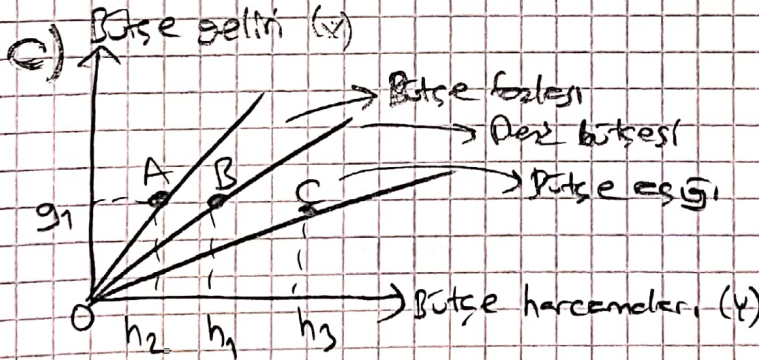 c) Bütçe geliri (x)
Bütçe fazlası
Denk bütçesi
Bütçe açığı
A
B
C
g1
O
h2 h1 h3
Bütçe harcamaları (y)